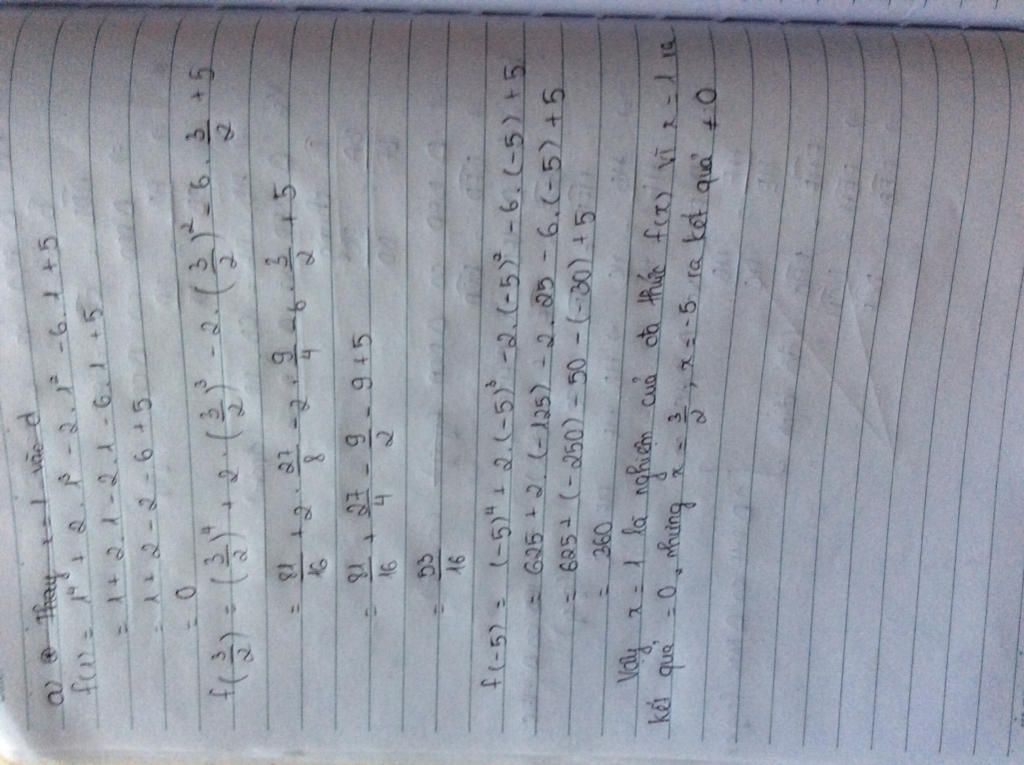 a) Thay x = 1 vào d
f(1) = 1⁴ + 2 . 1³ - 2 . 1² - 6 . 1 + 5
= 1 + 2 . 1 - 2 . 1 - 6 . 1 + 5
= 1 + 2 - 2 - 6 + 5
= 0
f(3/2) = (3/2)⁴ + 2 . (3/2)³ - 2 . (3/2)² - 6 . 3/2 + 5
= 81/16 + 2 . 27/8 - 2 . 9/4 - 6 . 3/2 + 5
= 81/16 + 27/4 - 9/2 - 9 + 5
= 53/16
f(-5) = (-5)⁴ + 2 . (-5)³ - 2 . (-5)² - 6 . (-5) + 5
= 625 + 2 . (-125) - 2 . 25 - 6 . (-5) + 5
= 625 + (-250) - 50 - (-30) + 5
= 360
Vậy x = 1 là nghiệm của đa thức f(x) vì x = 1 ra
kết quả = 0, nhưng x = 3/2 ; x = -5 ra kết quả ≠ 0